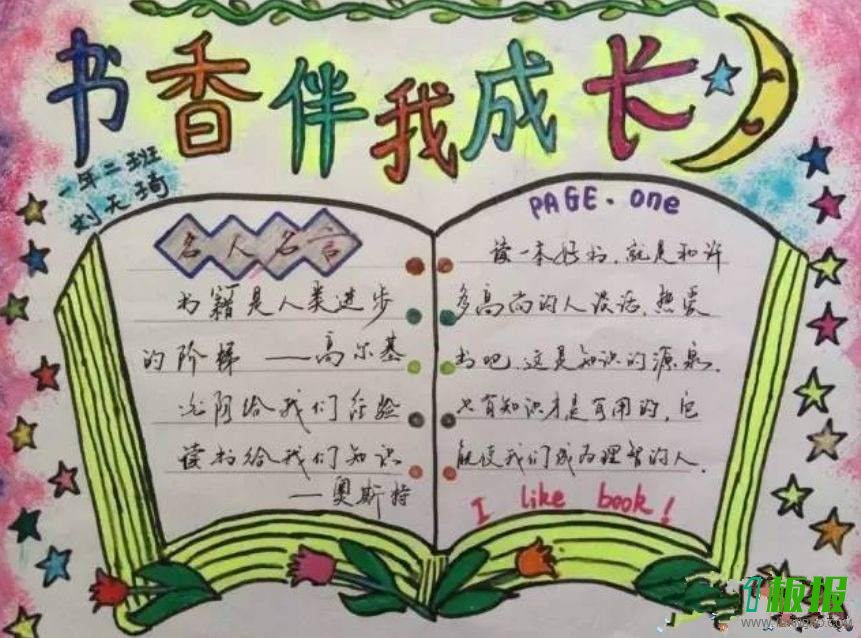 书香伴我成长
一年二班
刘天琦
名人名言
书籍是人类进步
的阶梯——高尔基
光阴给我们经验
读书给我们知识
——奥斯特
PAGE·one
读一本好书，就是和许
多高尚的人谈话，热爱
书吧，这是知识的源泉，
只有知识才是有用的，它
能使我们成为理智的人。
I like book!
板报